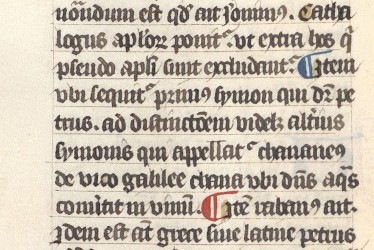 nōndum est qđ ait Jeronimꝰ. Catha
logus aplꝝ ponitᷣ. vt extra hos qͥ
pseudo apli sunt excludantᷣ. ¶ Jtem
vbi sequitᷣ primꝰ symon qui dr̄ pe
trus. ad distinctōem videlꝫ altiꝰ
symonis qui appellatᷣ chananeꝰ
de vico galilee chana vbi dn̄s aq̄s
conūtit in vinū. ¶ Jtē rabanꝰ ait.
Jdem est aūt grece siue latine petrus